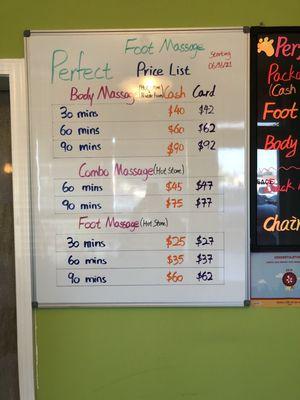 Foot Massage
Starting
Perfect
Price List
Body Massage Cash Card
30 mins $40 $42
60 mins $60 $62
90 mins $90 $92
Combo Massage (Hot Stone)
60 mins $45 $47
90 mins $75 $77
Foot Massage (Hot Stone)
30 mins $25 $27
60 mins $35 $37
90 mins $60 $62
Price
Packa
(Cash
Foot
Body
Chair